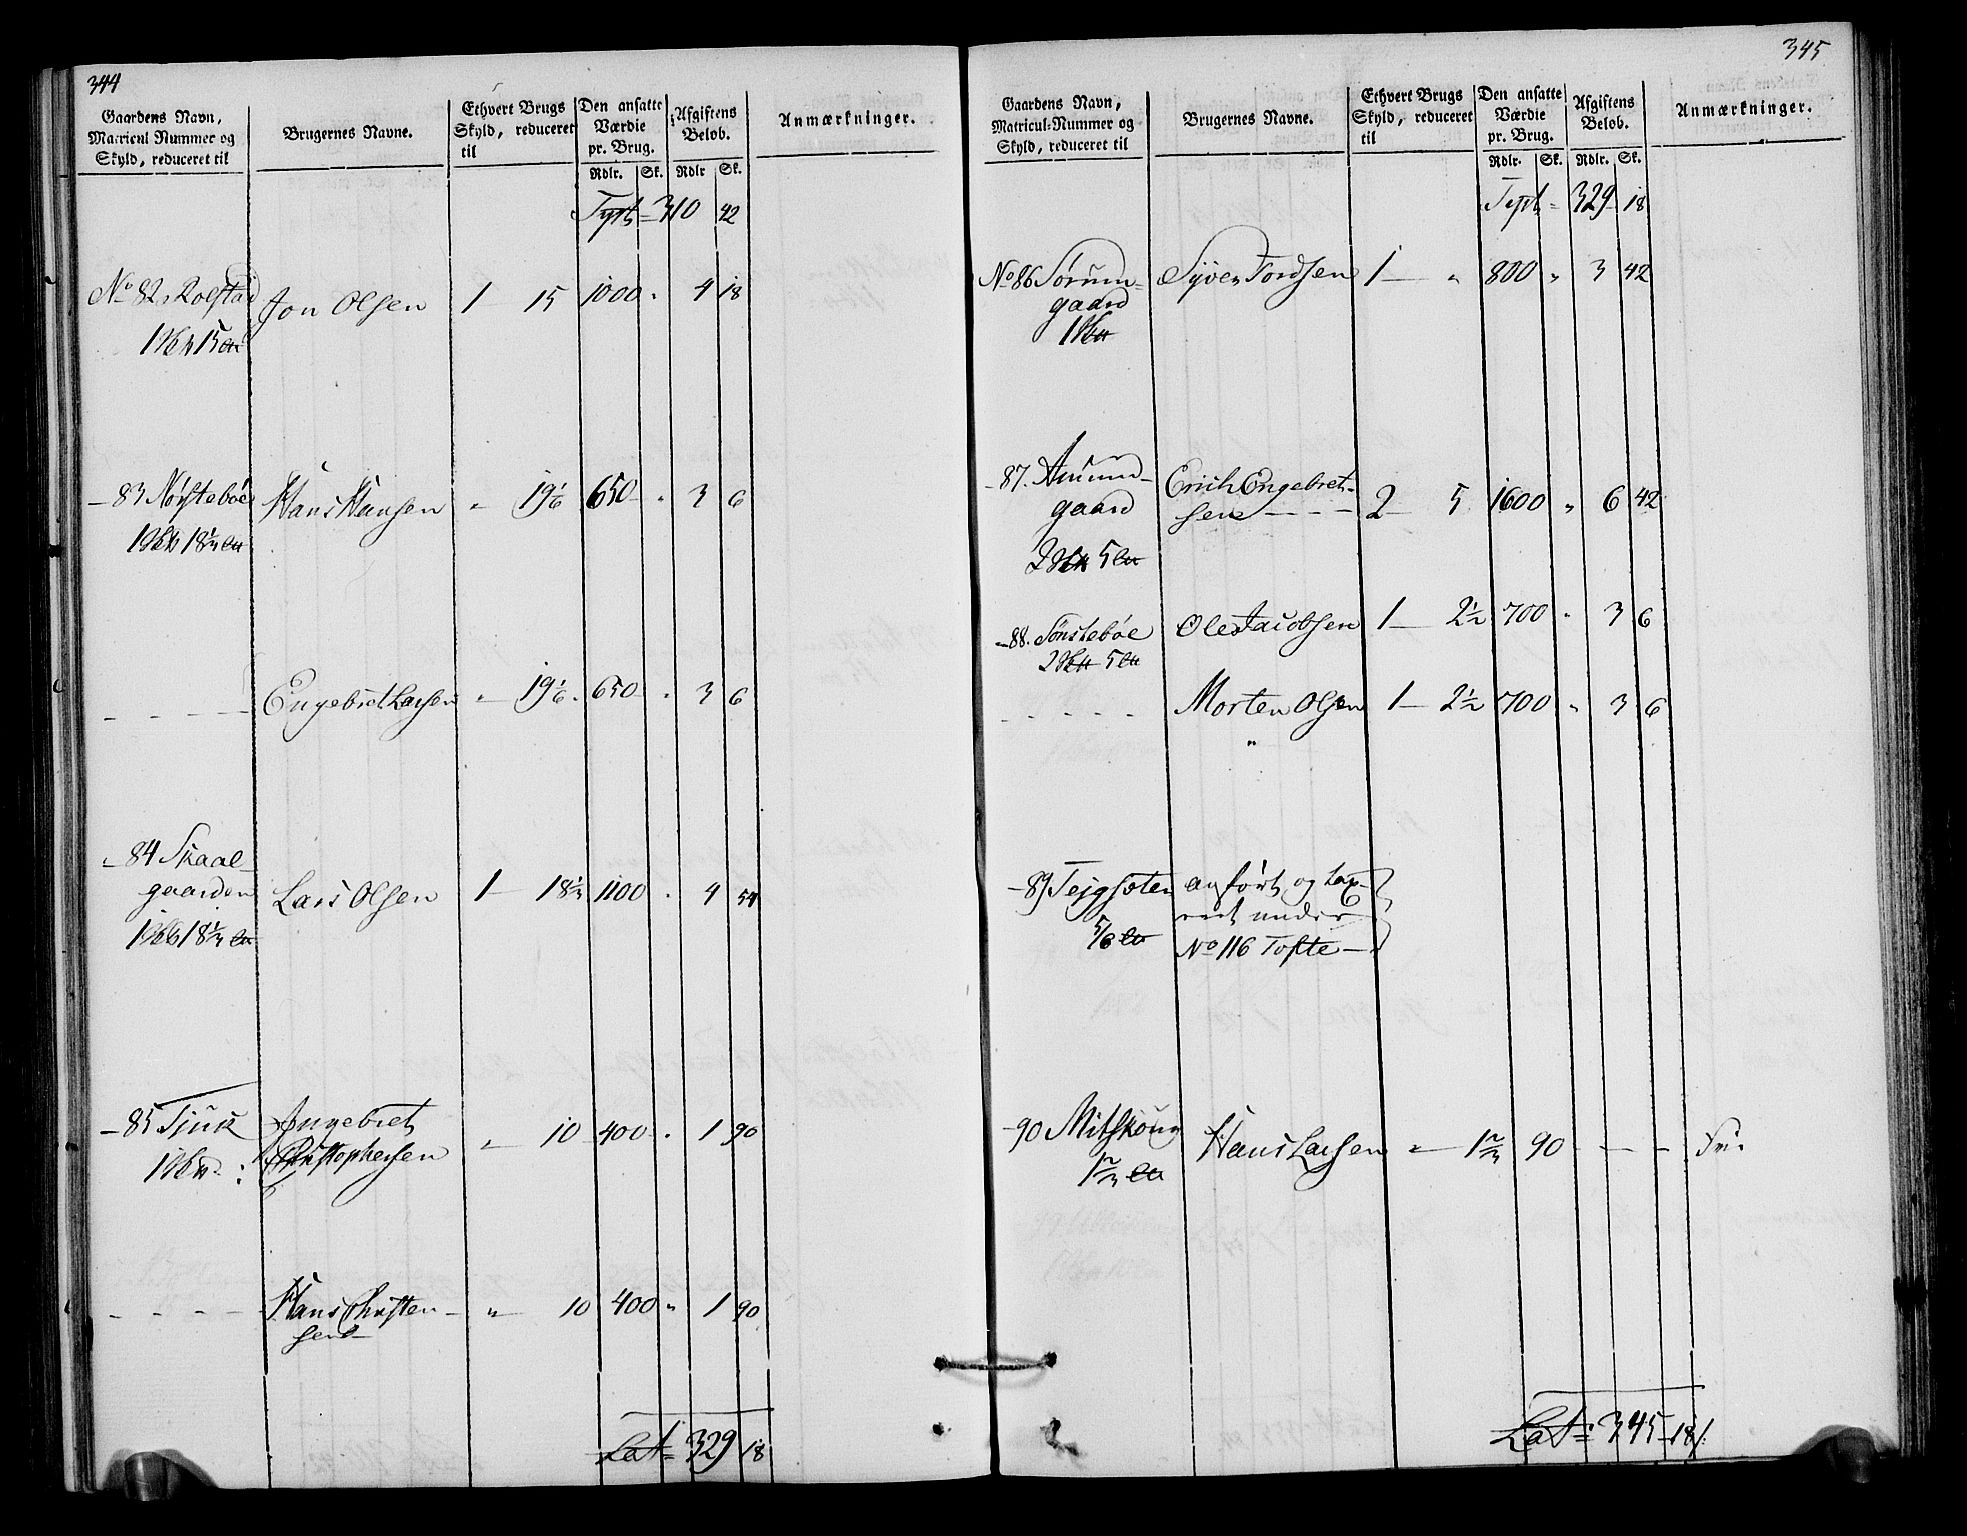 344
Gaardens Navn, Matricul Nummer og Skyld, reduceret til | Brugernes Navne. | Ethvert Brugs Skyld, reduceret til | Den ansatte Værdie pr. Brug. | Afgiftens Beløb. | Anmærkninger.
Rdlr. Sk. Rdlr Sk.
Tspt = 310 42
No 82 Rolstad Jon Olsen 1 15 1000 " 4 18
15
- 83 Nørsteböe Hans Hansen " - 19 1/6 650 - " 3 6
18 1/3
- - - - Engebret Larsen " - 19 1/6 650 " 3 6
- 84 Skaal-
gaarden Lars Olsen 1 - 18 1/3 1100 " 4 54
18 1/3
- 85 Tjuk Ingebret
Christophersen " - 10 400 " 1 90
- - - - Hans Christen-
sen " - 10 400 " 1 90
Lat = 329 18
345
Gaardens Navn, Matricul-Nummer og Skyld, reduceret til | Brugernes Navne. | Ethvert Brugs Skyld, reduceret til | Den ansatte Værdie pr. Brug. | Afgiftens Beløb. | Anmærkninger.
Rdlr. Sk. Rdlr. Sk.
Tspt = 329 18
No 86 Sørum- Syver Fordsen 1 - " 800 " 3 42
gaard
1
- 87. Aaruum- Erich Engebret-
gaard sen - - - - 2 5 1600 " 6 42
2 5
- 88. Sønsteböe Ole Jacobsen 1 - 2 1/2 700 " 3 6
2 5
- - - - - Morten Olsen 1 - 2 1/2 700 " 3 6
"
- 89 Tejgsoten anført og tax-
5/6 eret under
No 116 Tofte -
- 90 Mitskoug Hans Larsen " - 1 2/3 90 - - - Frie
1 2/3
Lat = 345 - 18